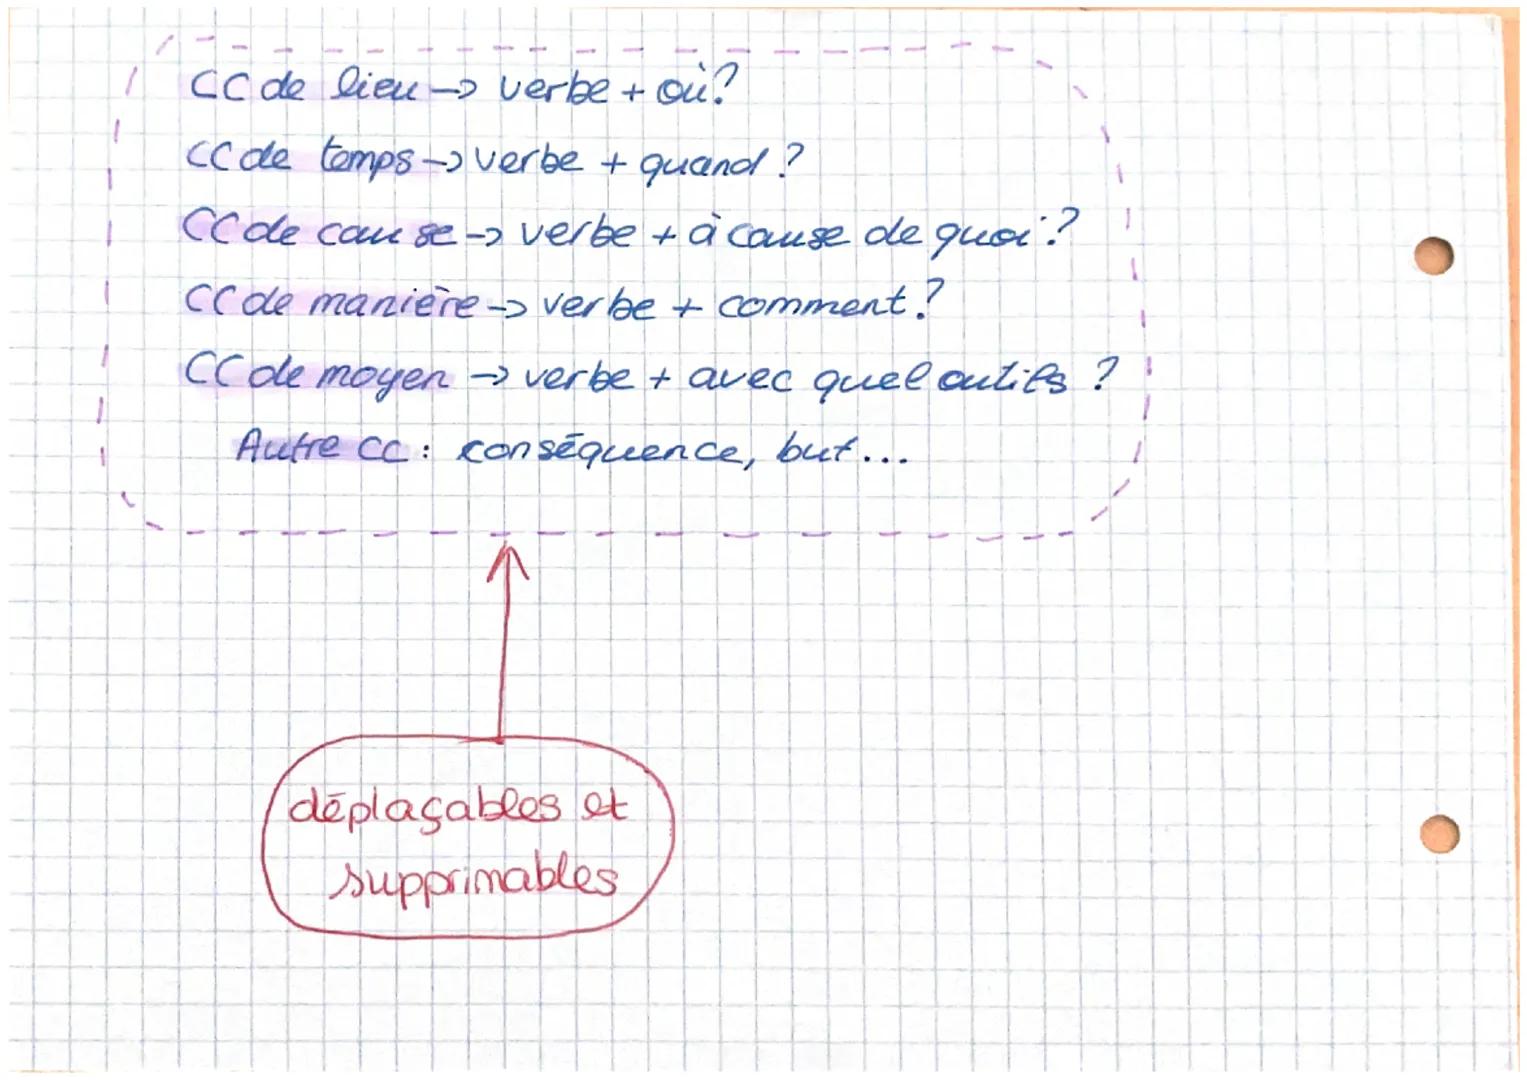 CC de lieu → verbe + où?
CC de temps → verbe + quand ?
CC de cause → verbe + à cause de quoi ?
CC de manière → verbe + comment ?
CC de moyen → verbe + avec quel outils ?
Autre CC : conséquence, but...
déplaçables et
supprimables